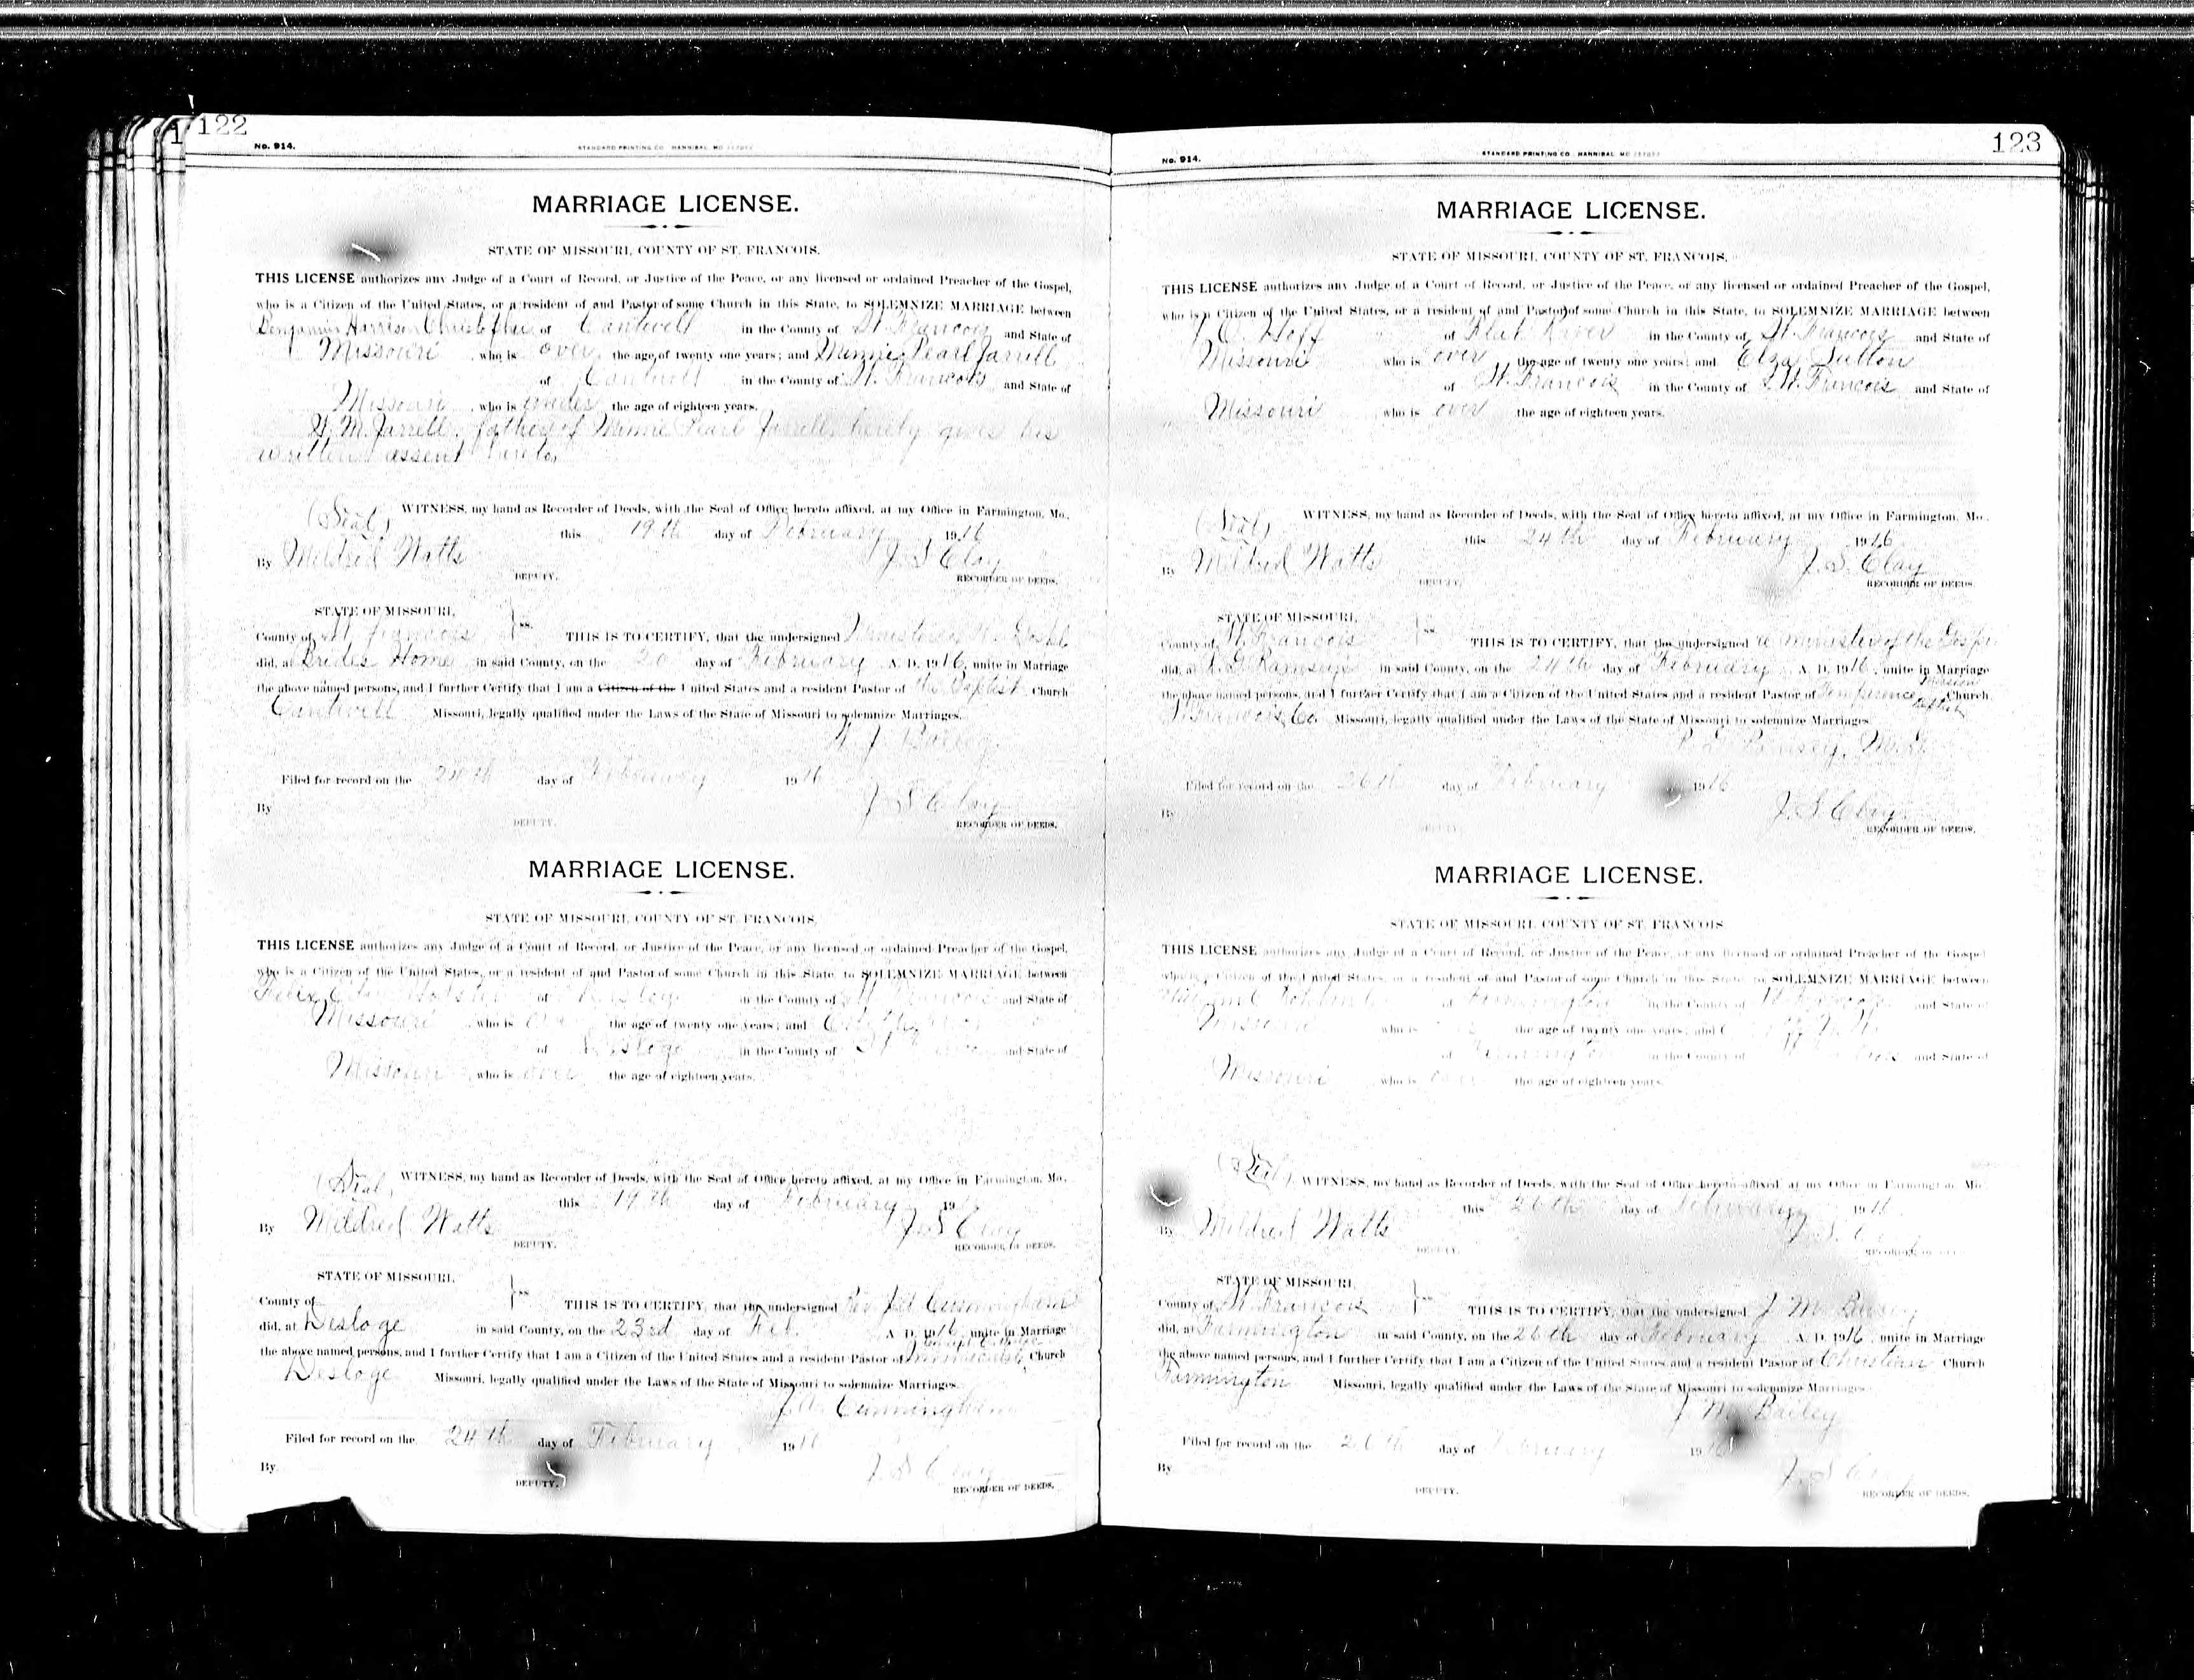 122
No. 914.
STANDARD PRINTING CO. HANNIBAL, MO.
MARRIAGE LICENSE.
STATE OF MISSOURI, COUNTY OF ST. FRANCOIS.
THIS LICENSE authorizes any Judge of a Court of Record, or Justice of the Peace, or any licensed or ordained Preacher of the Gospel,
who is a Citizen of the United States, or a resident of and Pastor of some Church in this State, to SOLEMNIZE MARRIAGE between
Benjamin Harrison Christopher of Cantwell in the County of St. Francois and State of
Missouri, who is over the age of twenty one years; and Minnie Pearl Jarrell
of Cantwell in the County of St. Francois and State of
Missouri, who is under the age of eighteen years.
M. Jarrell, father of Minnie Pearl Jarrell, hereby gives his
written assent hereto,
(Seal) WITNESS, my hand as Recorder of Deeds, with the Seal of Office hereto affixed, at my Office in Farmington, Mo.,
this 19th day of February 1916
By Mildred Watts J. S. Clay
DEPUTY. RECORDER OF DEEDS.
STATE OF MISSOURI,
County of St. Francois ss. THIS IS TO CERTIFY, that the undersigned
did, at Brides Home in said County, on the 20 day of February A. D. 1916, unite in Marriage
the above named persons, and I further Certify that I am a Citizen of the United States and a resident Pastor of the Baptist Church
Cantwell Missouri, legally qualified under the Laws of the State of Missouri to solemnize Marriages.
Filed for record on the day of February 1916
J. S. Clay
By
DEPUTY. RECORDER OF DEEDS.
MARRIAGE LICENSE.
STATE OF MISSOURI, COUNTY OF ST. FRANCOIS.
THIS LICENSE authorizes any Judge of a Court of Record, or Justice of the Peace, or any licensed or ordained Preacher of the Gospel,
who is a Citizen of the United States, or a resident of and Pastor of some Church in this State, to SOLEMNIZE MARRIAGE between
Felix of in the County of St. Francois and State of
Missouri, who is the age of twenty one years; and
of Desloge in the County of St. and State of
Missouri, who is over the age of eighteen years.
(Seal) WITNESS, my hand as Recorder of Deeds, with the Seal of Office hereto affixed, at my Office in Farmington, Mo.,
this 19th day of February 19
By Mildred Watts J. S. Clay
DEPUTY. RECORDER OF DEEDS.
STATE OF MISSOURI,
County of ss. THIS IS TO CERTIFY, that the undersigned Rev J. A. Cunningham
did, at Desloge in said County, on the 23rd day of Feb. A. D. 1916, unite in Marriage
the above named persons, and I further Certify that I am a Citizen of the United States and a resident Pastor of Church
Desloge Missouri, legally qualified under the Laws of the State of Missouri to solemnize Marriages.
J. A. Cunningham
Filed for record on the 24th day of February 1916
By J. S. Clay
DEPUTY. RECORDER OF DEEDS.
123
No. 914.
STANDARD PRINTING CO. HANNIBAL, MO.
MARRIAGE LICENSE.
STATE OF MISSOURI, COUNTY OF ST. FRANCOIS.
THIS LICENSE authorizes any Judge of a Court of Record, or Justice of the Peace, or any licensed or ordained Preacher of the Gospel,
who is a Citizen of the United States, or a resident of and Pastor of some Church in this State, to SOLEMNIZE MARRIAGE between
Hoff of Flat River in the County of St. Francois and State of
Missouri who is over the age of twenty one years; and Elza Sutton
of St. Francois in the County of St. Francois and State of
Missouri who is over the age of eighteen years.
(Seal) WITNESS, my hand as Recorder of Deeds, with the Seal of Office hereto affixed, at my Office in Farmington, Mo.,
this 24th day of February 1916
By Mildred Watts J. S. Clay
DEPUTY. RECORDER OF DEEDS.
STATE OF MISSOURI,
County of St. Francois ss. THIS IS TO CERTIFY, that the undersigned a minister of the Gospel
did, at Ramsey's in said County, on the 24th day of February A. D. 1916, unite in Marriage
the above named persons, and I further Certify that I am a Citizen of the United States and a resident Pastor of Temperence Mission Baptist Church
St. Francois Co Missouri, legally qualified under the Laws of the State of Missouri to solemnize Marriages.
Ramsey,
Filed for record on the 26th day of February 1916
By J. S. Clay
DEPUTY. RECORDER OF DEEDS.
MARRIAGE LICENSE.
STATE OF MISSOURI, COUNTY OF ST. FRANCOIS
THIS LICENSE authorizes any Judge of a Court of Record, or Justice of the Peace, or any licensed or ordained Preacher of the Gospel
who is a Citizen of the United States, or a resident of and Pastor of some Church in this State, to SOLEMNIZE MARRIAGE between
of Farmington in the County of St Francois and State of
Missouri who is the age of twenty one years; and
of Farmington in the County of and State of
Missouri who is over the age of eighteen years.
(Seal) WITNESS, my hand as Recorder of Deeds, with the Seal of Office hereto affixed, at my Office in Farmington, Mo
this 26th day of February 1916
By Mildred Watts J. S.
DEPUTY. RECORDER OF
STATE OF MISSOURI,
County of St. Francois ss. THIS IS TO CERTIFY, that the undersigned J. M. Bailey
did, at Farmington in said County, on the 26th day of February A. D. 1916, unite in Marriage
the above named persons, and I further Certify that I am a Citizen of the United States and a resident Pastor of Christian Church
Farmington Missouri, legally qualified under the Laws of the State of Missouri to solemnize Marriages.
J M. Bailey
Filed for record on the 26th day of February 1916
By J. S. Clay
DEPUTY. RECORDER OF DEEDS.